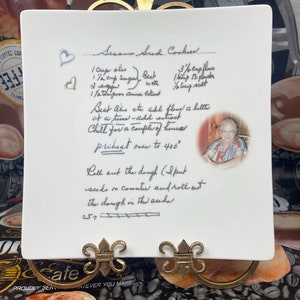 Sesame Seed Cookies
1 Cup oleo 3½ Cup flour
1½ Cup sugar Beat 1 tsp B. powder
3 eggs well ½ tsp salt
1½ teaspoon anise extract
Beat oleo etc add flour a little
at a time - add extract
Chill for a couple of hours
preheat oven to 400°
Roll out the dough (I put
seeds on counter and roll out
the dough in the seeds
COFFEE
Cafe
PROUDLY SERVING WHATEVER YOU MAKE